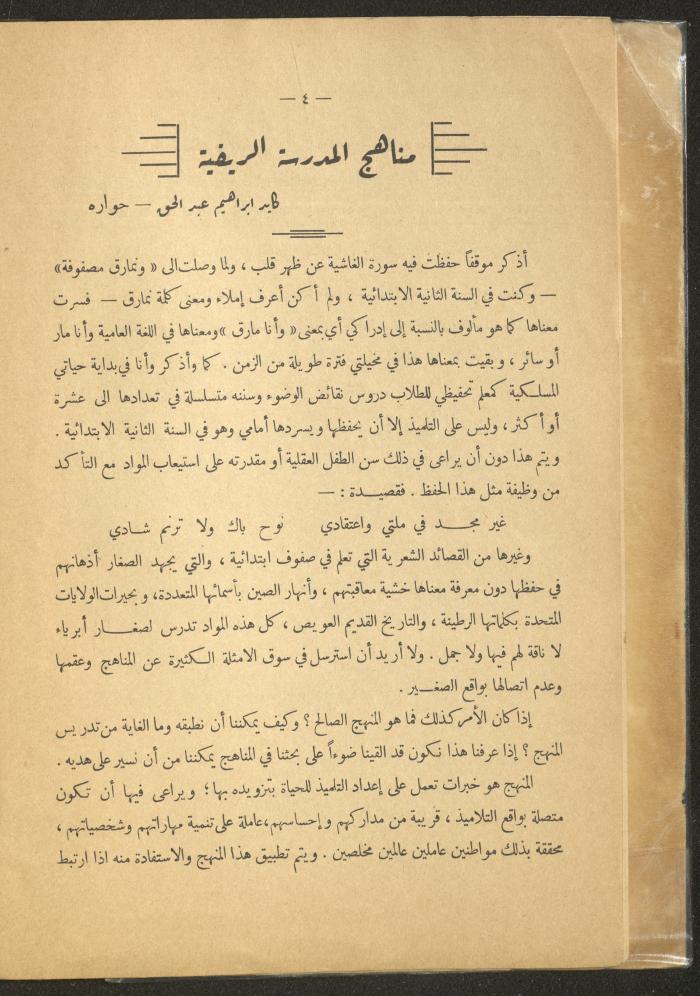 — ٤ —
مناهج المدرسة الريفية
كايد ابراهيم عبد الحق — حواره
أذكر موقفاً حفظت فيه سورة الغاشية عن ظهر قلب ، ولما وصلت الى « ونمارق مصفوفة»
— وكنت في السنة الثانية الابتدائية ، ولم أكن أعرف إملاء ومعنى كلمة نمارق — فسرت
معناها كما هو مألوف بالنسبة إلى إدراكي أي بمعنى« وأنا مارق »ومعناها في اللغة العامية وأنا مار
أو سائر ، وبقيت بمعناها هذا في مخيلتي فترة طويلة من الزمن . كما وأذكر وأنا في بداية حياتي
المسلكية كمعلم تحفيظي للطلاب دروس نقائض الوضوء وسننه متسلسلة في تعدادها الى عشرة
أو أكثر ، وليس على التلميذ إلا أن يحفظها ويسردها أمامي وهو في السنة الثانية الابتدائية .
ويتم هذا دون أن يراعى في ذلك سن الطفل العقلية أو مقدرته على استيعاب المواد مع التأكد
من وظيفة مثل هذا الحفظ . فقصيدة : —
غير مجد في ملتي واعتقادي نوح باك ولا ترنم شادي
وغيرها من القصائد الشعرية التي تعلم في صفوف ابتدائية ، والتي يجهد الصغار أذهانهم
في حفظها دون معرفة معناها خشية معاقبتهم ، وأنهار الصين بأسمائها المتعددة، وبحيرات الولايات
المتحدة بكلماتها الرطينة ، والتاريخ القديم العويص ، كل هذه المواد تدرس لصغار أبرياء
لا ناقة لهم فيها ولا جمل . ولا أريد أن استرسل في سوق الامثلة الكثيرة عن المناهج وعقمها
وعدم اتصالها بواقع الصغير .
إذا كان الأمر كذلك فما هو المنهج الصالح ؟ وكيف يمكننا أن نطبقه وما الغاية من تدريس
المنهج ؟ إذا عرفنا هذا نكون قد القينا ضوءاً على بحثنا في المناهج يمكننا من أن نسير على هديه .
المنهج هو خبرات تعمل على إعداد التلميذ للحياة بتزويده بها ؛ ويراعى فيها أن تكون
متصلة بواقع التلاميذ ، قريبة من مداركهم وإحساسهم،عاملة على تنمية مهاراتهم وشخصياتهم ،
محققة بذلك مواطنين عاملين عالمين مخلصين . ويتم تطبيق هذا المنهج والاستفادة منه اذا ارتبط